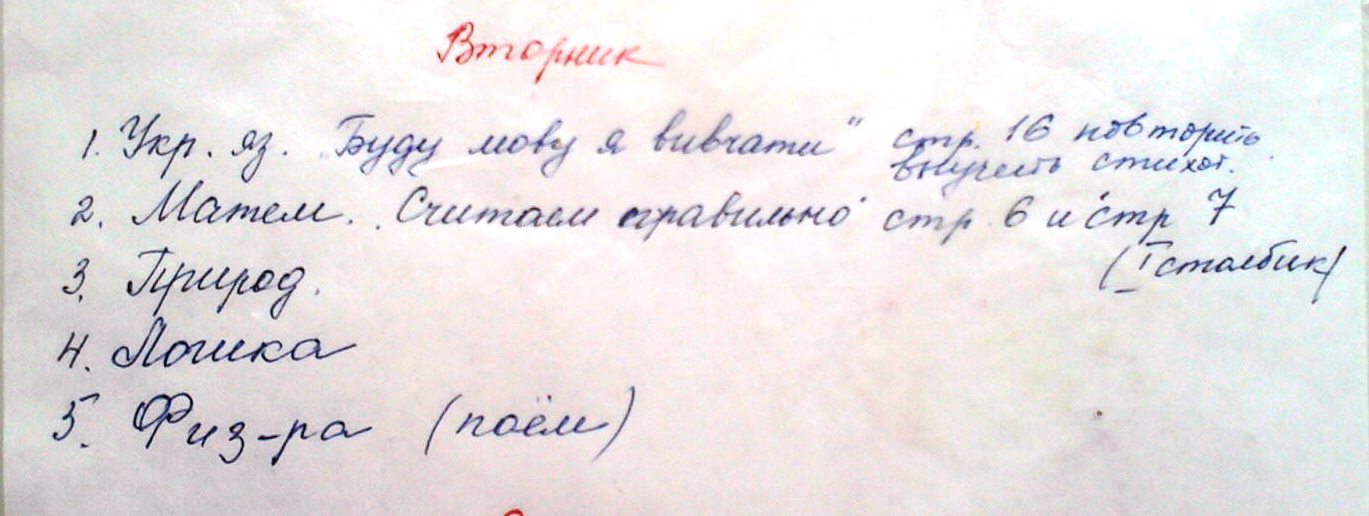 Вторник
1. Укр. яз. "Буду мову я вивчати" стр. 16 повторить
выучить стихот.
2. Матем. "Считаем правильно" стр. 6 и стр 7
(I столбик)
3. Природ.
4. Логика
5. Физ-ра (поём)